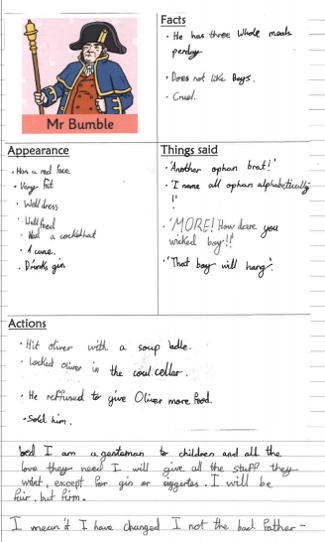 Mr Bumble
Facts
• He has three whole meals
perday.
• Does not like Boys.
• Cruel.
Appearance
• Has a red face
• Very fat
• Well dress
• Well feed
• Had a cocked hat
• A cane.
• Drinks gin
Things said
• 'Another ophan brat!'
• 'I name all ophan alphabetically
!'
• 'MORE! How dare you
wicked boy!!'
• 'That boy will hang'.
Actions
• Hit oliver with a soup ladle.
• Locked oliver in the coal cellar.
• He reffused to give Oliver more food.
• Sold him.
I am a gentoman to children and all the
love they need I will give all the stuff they
what, except for gin or I will be
fair, but firm.
I mean it I have changed I not the bad father-